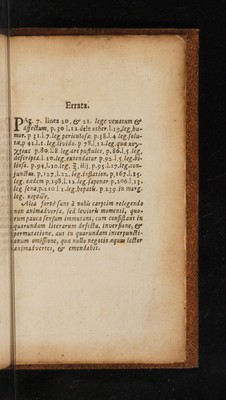 Errata.
Pag. 7. linea 20, & 21. lege venatum &
affectum, p. 30 l.12. dele other. l.19,leg,hu-
mor. p 31.l.7. leg pericutosæ. p 38.l.4. leg.solu-
tæ,p 42.l.1. leg.livido. p 78.l.12.leg.quæ
p.80.l.8 leg are pustules, p.86.l 5 leg,
descripta.l 10.leg.extendatur p 92.l 5 leg.bi-
liosis. p 94,l.10.leg. iiij. p.95.l.17.leg.con-
junctim. p.127,l.22.leg.inflation. p,167.l.15.
leg. eadem p.198.l.12.leg.saponar p.206.l.13.
leg sena,p 210 l 1.leg.hepatis. p 239 in marg.
leg.
Alia fortè sunt à nobis carptim relegendo
non animadversa, sed levioris momenti, quo-
rum pauca sensum immutant, cum consistant in
quarundam literarum defectu, inversione, &
permutatione, aut in quarundam interpuncti-
onum omissione, quæ nullo negotio æquus lector
animadvertet, & emendabit.